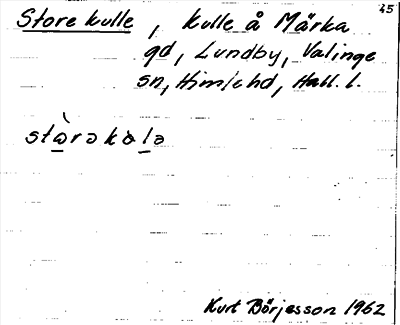 45
Store kulle, kulle å Märka
gd, Lundby, Valinge
sn, Himle hd, Hall. l.
stὼrəkὼlə
Kurt Börjesson 1962